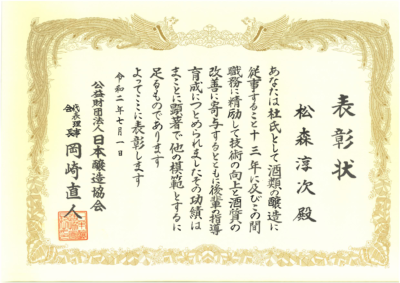 表彰状
松森淳次殿
あなたは杜氏として酒類の醸造に
従事すること十三年に及びこの間
職務に精励して技術の向上と酒質の
改善に寄与するとともに後輩の指導
育成につとめられましたその功績は
まことに顕著で他の模範とするに
足るものであります
よってここに表彰します
令和二年七月一日
公益財団法人日本醸造協会
代表理事
会長
岡崎直人